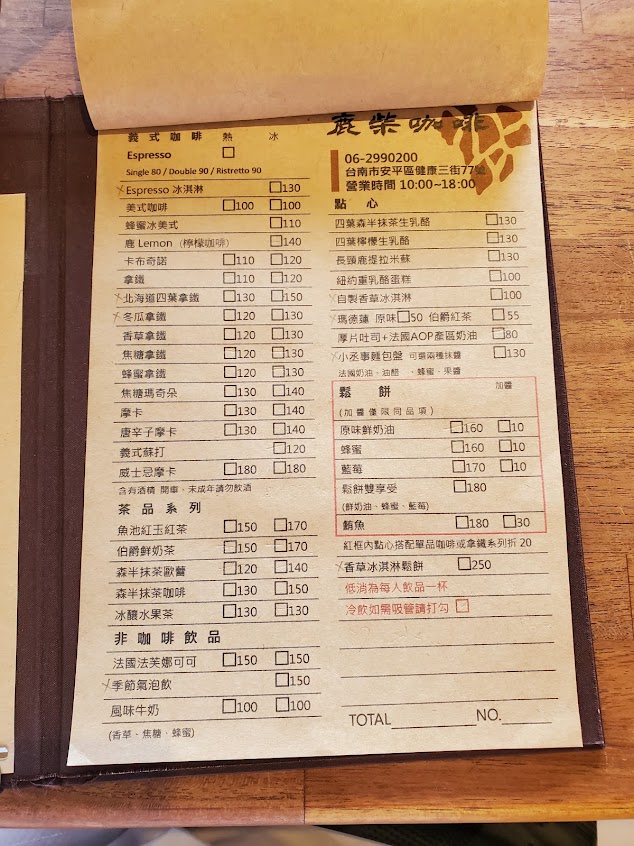 鹿柴咖啡
06-2990200
台南市安平區健康三街77號
營業時間 10:00~18:00
義式咖啡 熱 冰
Espresso □
Single 80 / Double 90 / Ristretto 90
Espresso 冰淇淋 □130
美式咖啡 □100 □100
蜂蜜冰美式 □110
鹿 Lemon (檸檬咖啡) □140
卡布奇諾 □110 □120
拿鐵 □110 □120
北海道四葉拿鐵 □130 □150
冬瓜拿鐵 □120 □130
香草拿鐵 □120 □130
焦糖拿鐵 □120 □130
蜂蜜拿鐵 □120 □130
焦糖瑪奇朵 □130 □140
摩卡 □130 □140
唐辛子摩卡 □130 □140
義式蘇打 □120
威士忌摩卡 □180 □180
含有酒精 開車、未成年請勿飲酒
茶品系列
魚池紅玉紅茶 □150 □170
伯爵鮮奶茶 □150 □170
森半抹茶歐蕾 □120 □140
森半抹茶咖啡 □130 □150
冰釀水果茶 □130 □130
非咖啡飲品
法國法芙娜可可 □150 □150
季節氣泡飲 □150
風味牛奶 □100 □100
(香草、焦糖、蜂蜜)
點心
四葉森半抹茶生乳酪 □130
四葉檸檬生乳酪 □130
長頸鹿提拉米蘇 □130
紐約重乳酪蛋糕 □100
自製香草冰淇淋 □100
瑪德蓮 原味□50 伯爵紅茶 □55
厚片吐司+法國AOP產區奶油 □80
小丞事麵包盤 可選兩種抹醬 □130
法國奶油、油醋 、蜂蜜、果醬
鬆餅 加醬
(加醬僅限同品項)
原味鮮奶油 □160 □10
蜂蜜 □160 □10
藍莓 □170 □10
鬆餅雙享受 □180
(鮮奶油、蜂蜜、藍莓)
鮪魚 □180 □30
紅框內點心搭配單品咖啡或拿鐵系列折 20
香草冰淇淋鬆餅 □250
低消為每人飲品一杯
冷飲如需吸管請打勾 □
TOTAL________NO.______